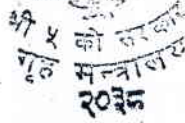 श्री ५ को सरकार
गृह मन्त्रालय
२०३८